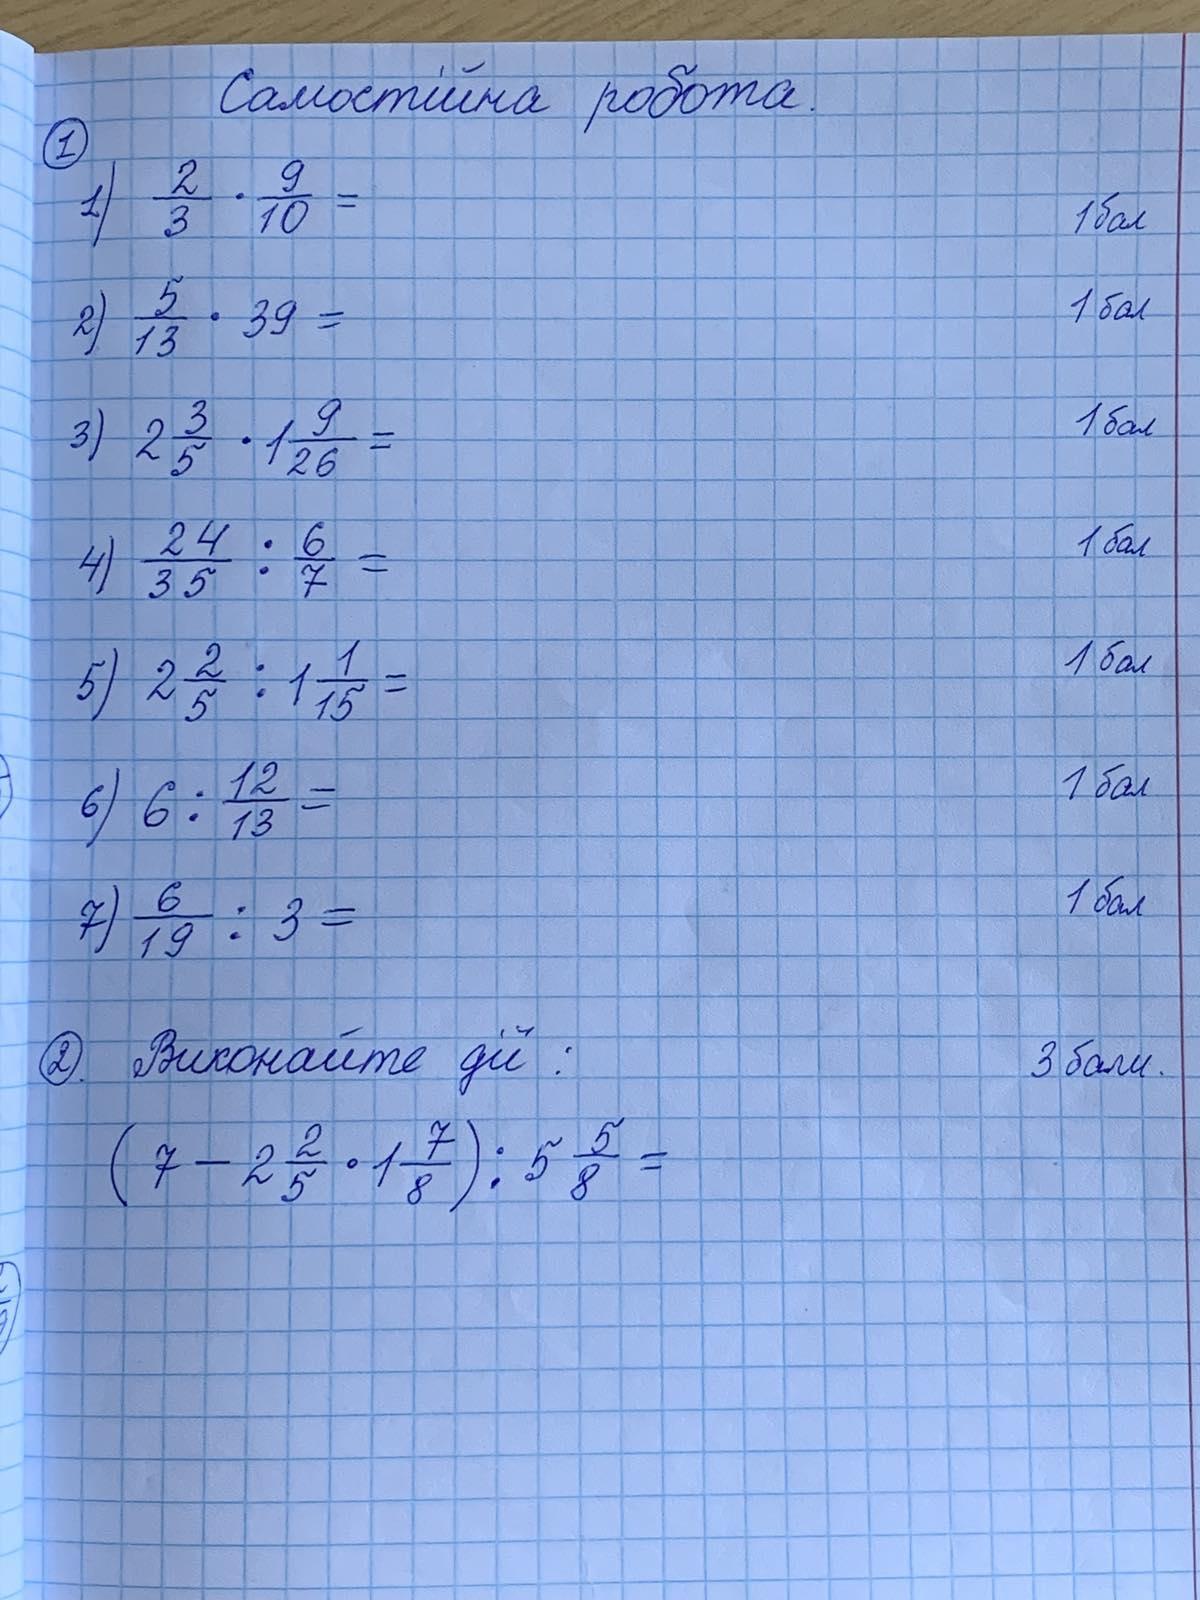 Самостійна робота.
1
1) 2/3 · 9/10 = 1 бал
2) 5/13 · 39 = 1 бал
3) 2 3/5 · 1 9/26 = 1 бал
4) 24/35 : 6/7 = 1 бал
5) 2 2/5 : 1 1/15 = 1 бал
6) 6 : 12/13 = 1 бал
7) 6/19 : 3 = 1 бал
2. Виконайте дії : 3 бали.
(7 – 2 2/5 · 1 7/8) : 5 5/8 =